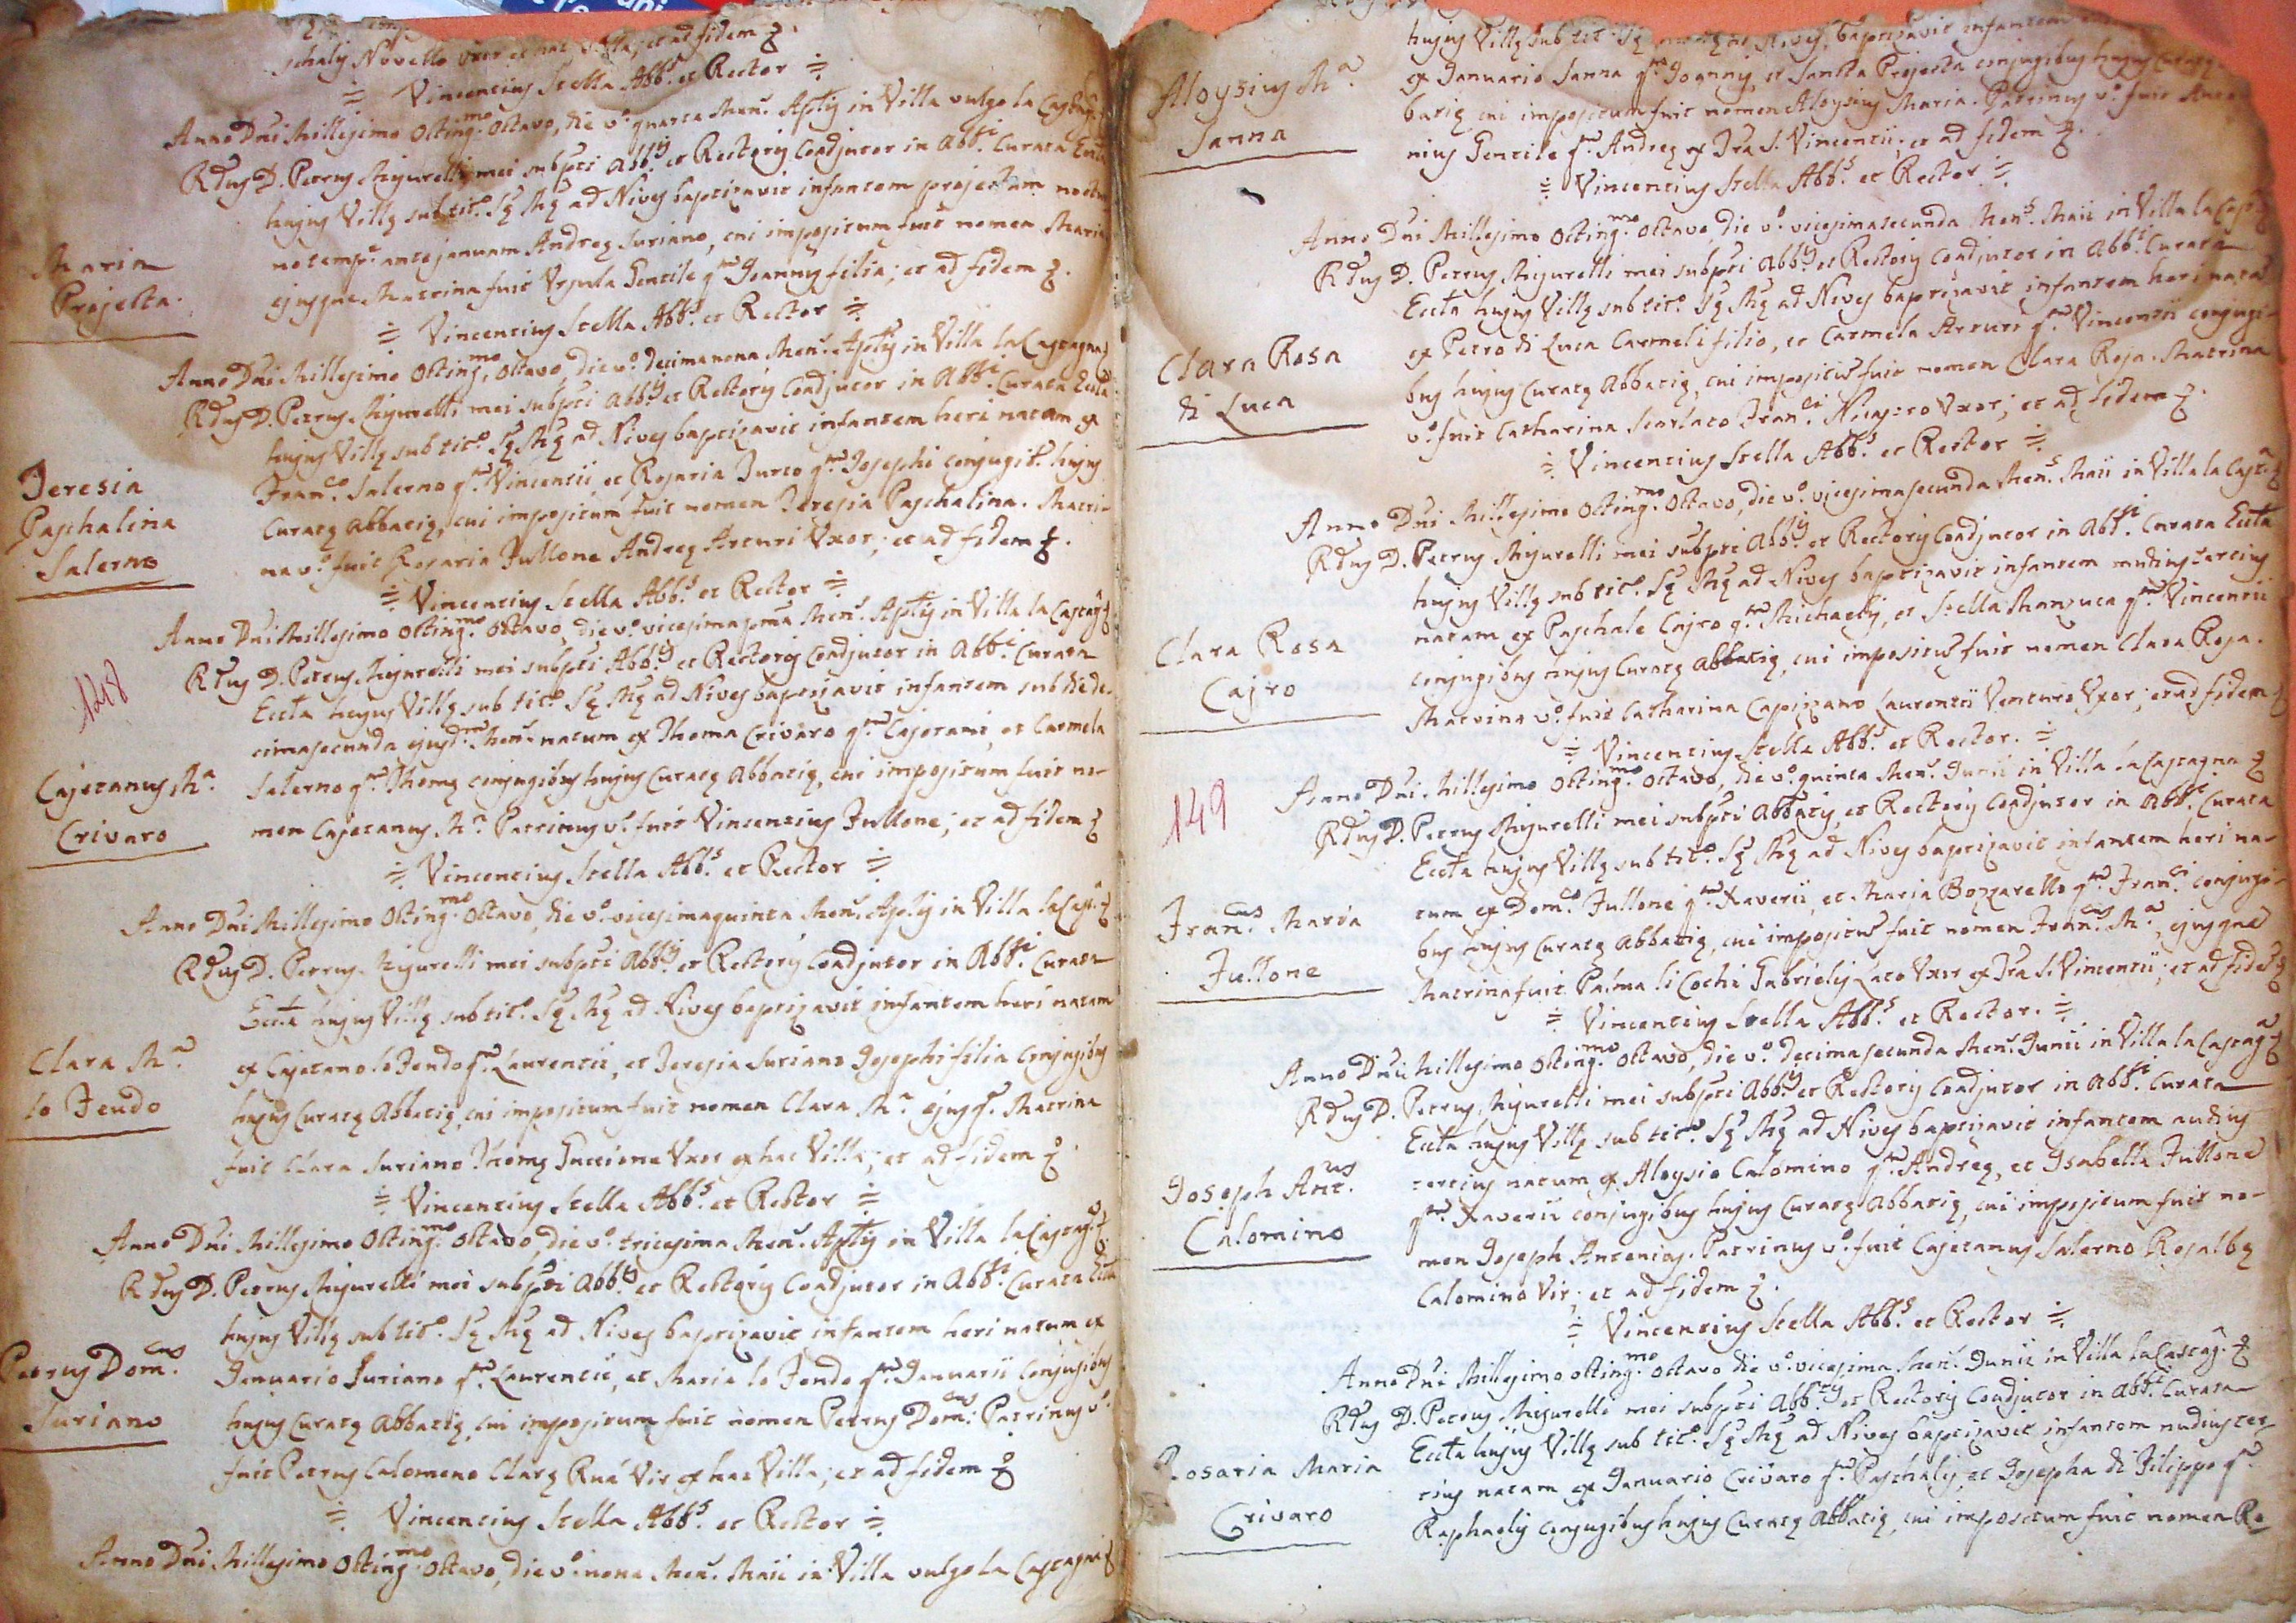 schalis Novello Uxor ex hac Villa; et ad fidem
= Vincentius Stella Abb.s et Rector =
Anno Dni Millesimo Octing.mo Octavo, die v.o quarta Men.s Aplis in Villa vulgo la Castag.a
Rdus D. Petrus Migurelli mei subpti Abb.tis et Rectoris Coadjutor in Abb.li Curata Eccta
Maria
Projecta.
hujus Villę sub tit.o Sę Mę ad Nives baptizavit infantem projectam noctur
no temp.e ante januam Andreę Suriano, cui impositum fuit nomen Maria
ejusque Matrina fuit Ursula Gentile q.m Joannis filia; et ad fidem
= Vincentius Stella Abb.s et Rector =
Anno Dni Millesimo Octing.mo Octavo, die v.o decimanona Men.s Aplis in Villa la Castagna
Rdus D. Petrus Migurelli mei subpti Abb.tis et Rectoris Coadjutor in Abb.li Curata Eccta
Teresia
Paschalina
Salerno
hujus Villę sub tit.o Sę Mę ad Nives baptizavit infantem heri natam ex
Fran.co Salerno q.m Vincentii, et Rosaria Turco q.m Josephi conjugib.s hujus
Curatę Abbatię, cui impositum fuit nomen Teresia Paschalina. Matri-
na v.o fuit Rosaria Fullone Andreę Arcuri Uxor; et ad fidem
= Vincentius Stella Abb.s et Rector =
Anno Dni Millesimo Octing.mo Octavo, die v.o vicesimaprima Men.s Aplis in Villa la Castag.a
148
Rdus D. Petrus Migurelli mei subpti Abb.tis et Rectoris Coadjutor in Abb.li Curata
Eccta hujus Villę sub tit.o Sę Mę ad Nives baptizavit infantem sub die de-
cimasecunda ejusd.m Men.s natum ex Thoma Crivaro q.m Cajetani, et Carmela
Cajetanus M.a
Crivaro
Salerno q.m Thomę conjugibus hujus Curatę Abbatię, cui impositum fuit no-
men Cajetanus M.a Patrinus v.o fuit Vincentius Fullone; et ad fidem
= Vincentius Stella Abb.s et Rector =
Anno Dni Millesimo Octing.mo Octavo, die v.o vicesimaquinta Men.s Aplis in Villa la Cast.a
Rdus D. Petrus Migurelli mei subpti Abb.tis et Rectoris Coadjutor in Abb.li Curata
Eccta hujus Villę sub tit.o Sę Mę ad Nives baptizavit infantem heri natam
Clara M.a
lo Feudo
ex Cajetano lo Feudo q.m Laurentii, et Teresia Suriano Josephi filia conjugibus
hujus Curatę Abbatię, cui impositum fuit nomen Clara M.a ejusq. Matrina
fuit Clara Suriano Thomę Guccione Uxor ex hac Villa; et ad fidem
= Vincentius Stella Abb.s et Rector =
Anno Dni Millesimo Octing.mo Octavo, die v.o tricesima Men.s Aplis in Villa la Castag.a
Rdus D. Petrus Migurelli mei subpti Abb.tis et Rectoris Coadjutor in Abb.li Curata Eccta
hujus Villę sub tit.o Sę Mę ad Nives baptizavit infantem heri natum ex
Petrus Dom.cus
Suriano
Januario Suriano q.m Laurentii, et Maria lo Feudo q.m Januarii conjugibus
hujus Curatę Abbatię, cui impositum fuit nomen Petrus Dom.cus Patrinus v.o
fuit Petrus Calomeno Clarę Ruá Vir ex hac Villa; et ad fidem
= Vincentius Stella Abb.s et Rector =
Anno Dni Millesimo Octing.mo Octavo, die v.o nona Men.s Maii in Villa vulgo la Castagna
hujus Villę sub tit.o Sę Mę ad Nives, baptizavit infantem
Aloysius M.a
Sanna
ex Januario Sanna q.m Joannis, et Sancta Projecta conjugibus hujus Curatę
batię, cui impositum fuit nomen Aloysius Maria. Patrinus v.o fuit Anto
nius Gentile q.m Andreę ex Tra S. Vincentii; et ad fidem
= Vincentius Stella Abb.s et Rector =
Anno Dni Millesimo Octing.mo Octavo, die v.o vicesimasecunda Men.s Maii in Villa la Cast.a
Rdus D. Petrus Migurelli mei subpti Abb.tis et Rectoris Coadjutor in Abb.li Curata
Eccta hujus Villę sub tit.o Sę Mę ad Nives baptizavit infantem heri natā
Clara Rosa
di Luca
ex Petro di Luca Carmeli filio, et Carmela Arcuri q.m Vincentii conjugi-
bus hujus Curatę Abbatię, cui impositū fuit nomen Clara Rosa. Matrina
v.o fuit Catharina Scarlato Fran.ci Nicastro Uxor; et ad fidem
= Vincentius Stella Abb.s et Rector =
Anno Dni Millesimo Octing.mo Octavo, die v.o vicesimasecunda Men.s Maii in Villa la Cast.a
Rdus D. Petrus Migurelli mei subpti Abb.tis et Rectoris Coadjutor in Abb.li Curata Eccta
hujus Villę sub tit.o Sę Mę ad Nives baptizavit infantem nudiustertius
Clara Rosa
Cajro
natam ex Paschale Cajro q.m Michaelis, et Stella Manzuca q.m Vincentii
conjugibus hujus Curatę Abbatię, cui impositū fuit nomen Clara Rosa.
Matrina v.o fuit Catharina Capizzano Laurentii Venturo Uxor; et ad fidem
= Vincentius Stella Abb.s et Rector. =
149
Anno Dni Millesimo Octing.mo Octavo, die v.o quinta Men.s Junii in Villa la Castagna
Rdus D. Petrus Migurelli mei subpti Abbatis, et Rectoris Coadjutor in Abb.li Curata
Eccta hujus Villę sub tit.o Sę Mę ad Nives baptizavit infantem heri na-
Fran.cus Maria
Fullone
tum ex Dom.co Fullone q.m Xaverii, et Maria Bozzarello q.m Fran.ci conjugi-
bus hujus Curatę Abbatię, cui impositū fuit nomen Fran.cus M.a, ejusque
Matrina fuit Palma li Cochi Gabrielis Laco Uxor ex Tra S. Vincentii; et ad fidē
= Vincentius Stella Abb.s et Rector. =
Anno Dni Millesimo Octing.mo Octavo, die v.o decimasecunda Men.s Junii in Villa la Castag.a
Rdus D. Petrus Migurelli mei subpti Abb.tis et Rectoris Coadjutor in Abb.li Curata
Eccta hujus Villę sub tit.o Sę Mę ad Nives baptizavit infantem nudius
Joseph Ant.us
Calomino
tertius natum ex Aloysio Calomino q.m Andreę, et Isabella Fullone
q.m Xaverii conjugibus hujus Curatę Abbatię, cui impositum fuit no-
men Joseph Antonius. Patrinus v.o fuit Cajetanus Salerno Rosalbę
Calomino Vir; et ad fidem
= Vincentius Stella Abb.s et Rector =
Anno Dni Millesimo Octing.mo Octavo die v.o vicesima Men.s Junii in Villa la Castag.a
Rdus D. Petrus Migurelli mei subpti Abb.tis et Rectoris Coadjutor in Abb.li Curata
Eccta hujus Villę sub tit.o Sę Mę ad Nives baptizavit infantem nudiuster
Rosaria Maria
Crivaro
tius natam ex Januario Crivaro q.m Paschalis, et Josepha di Filippo q.m
Raphaelis conjugibus hujus Curatę Abbatię, cui impositum fuit nomen Ro-